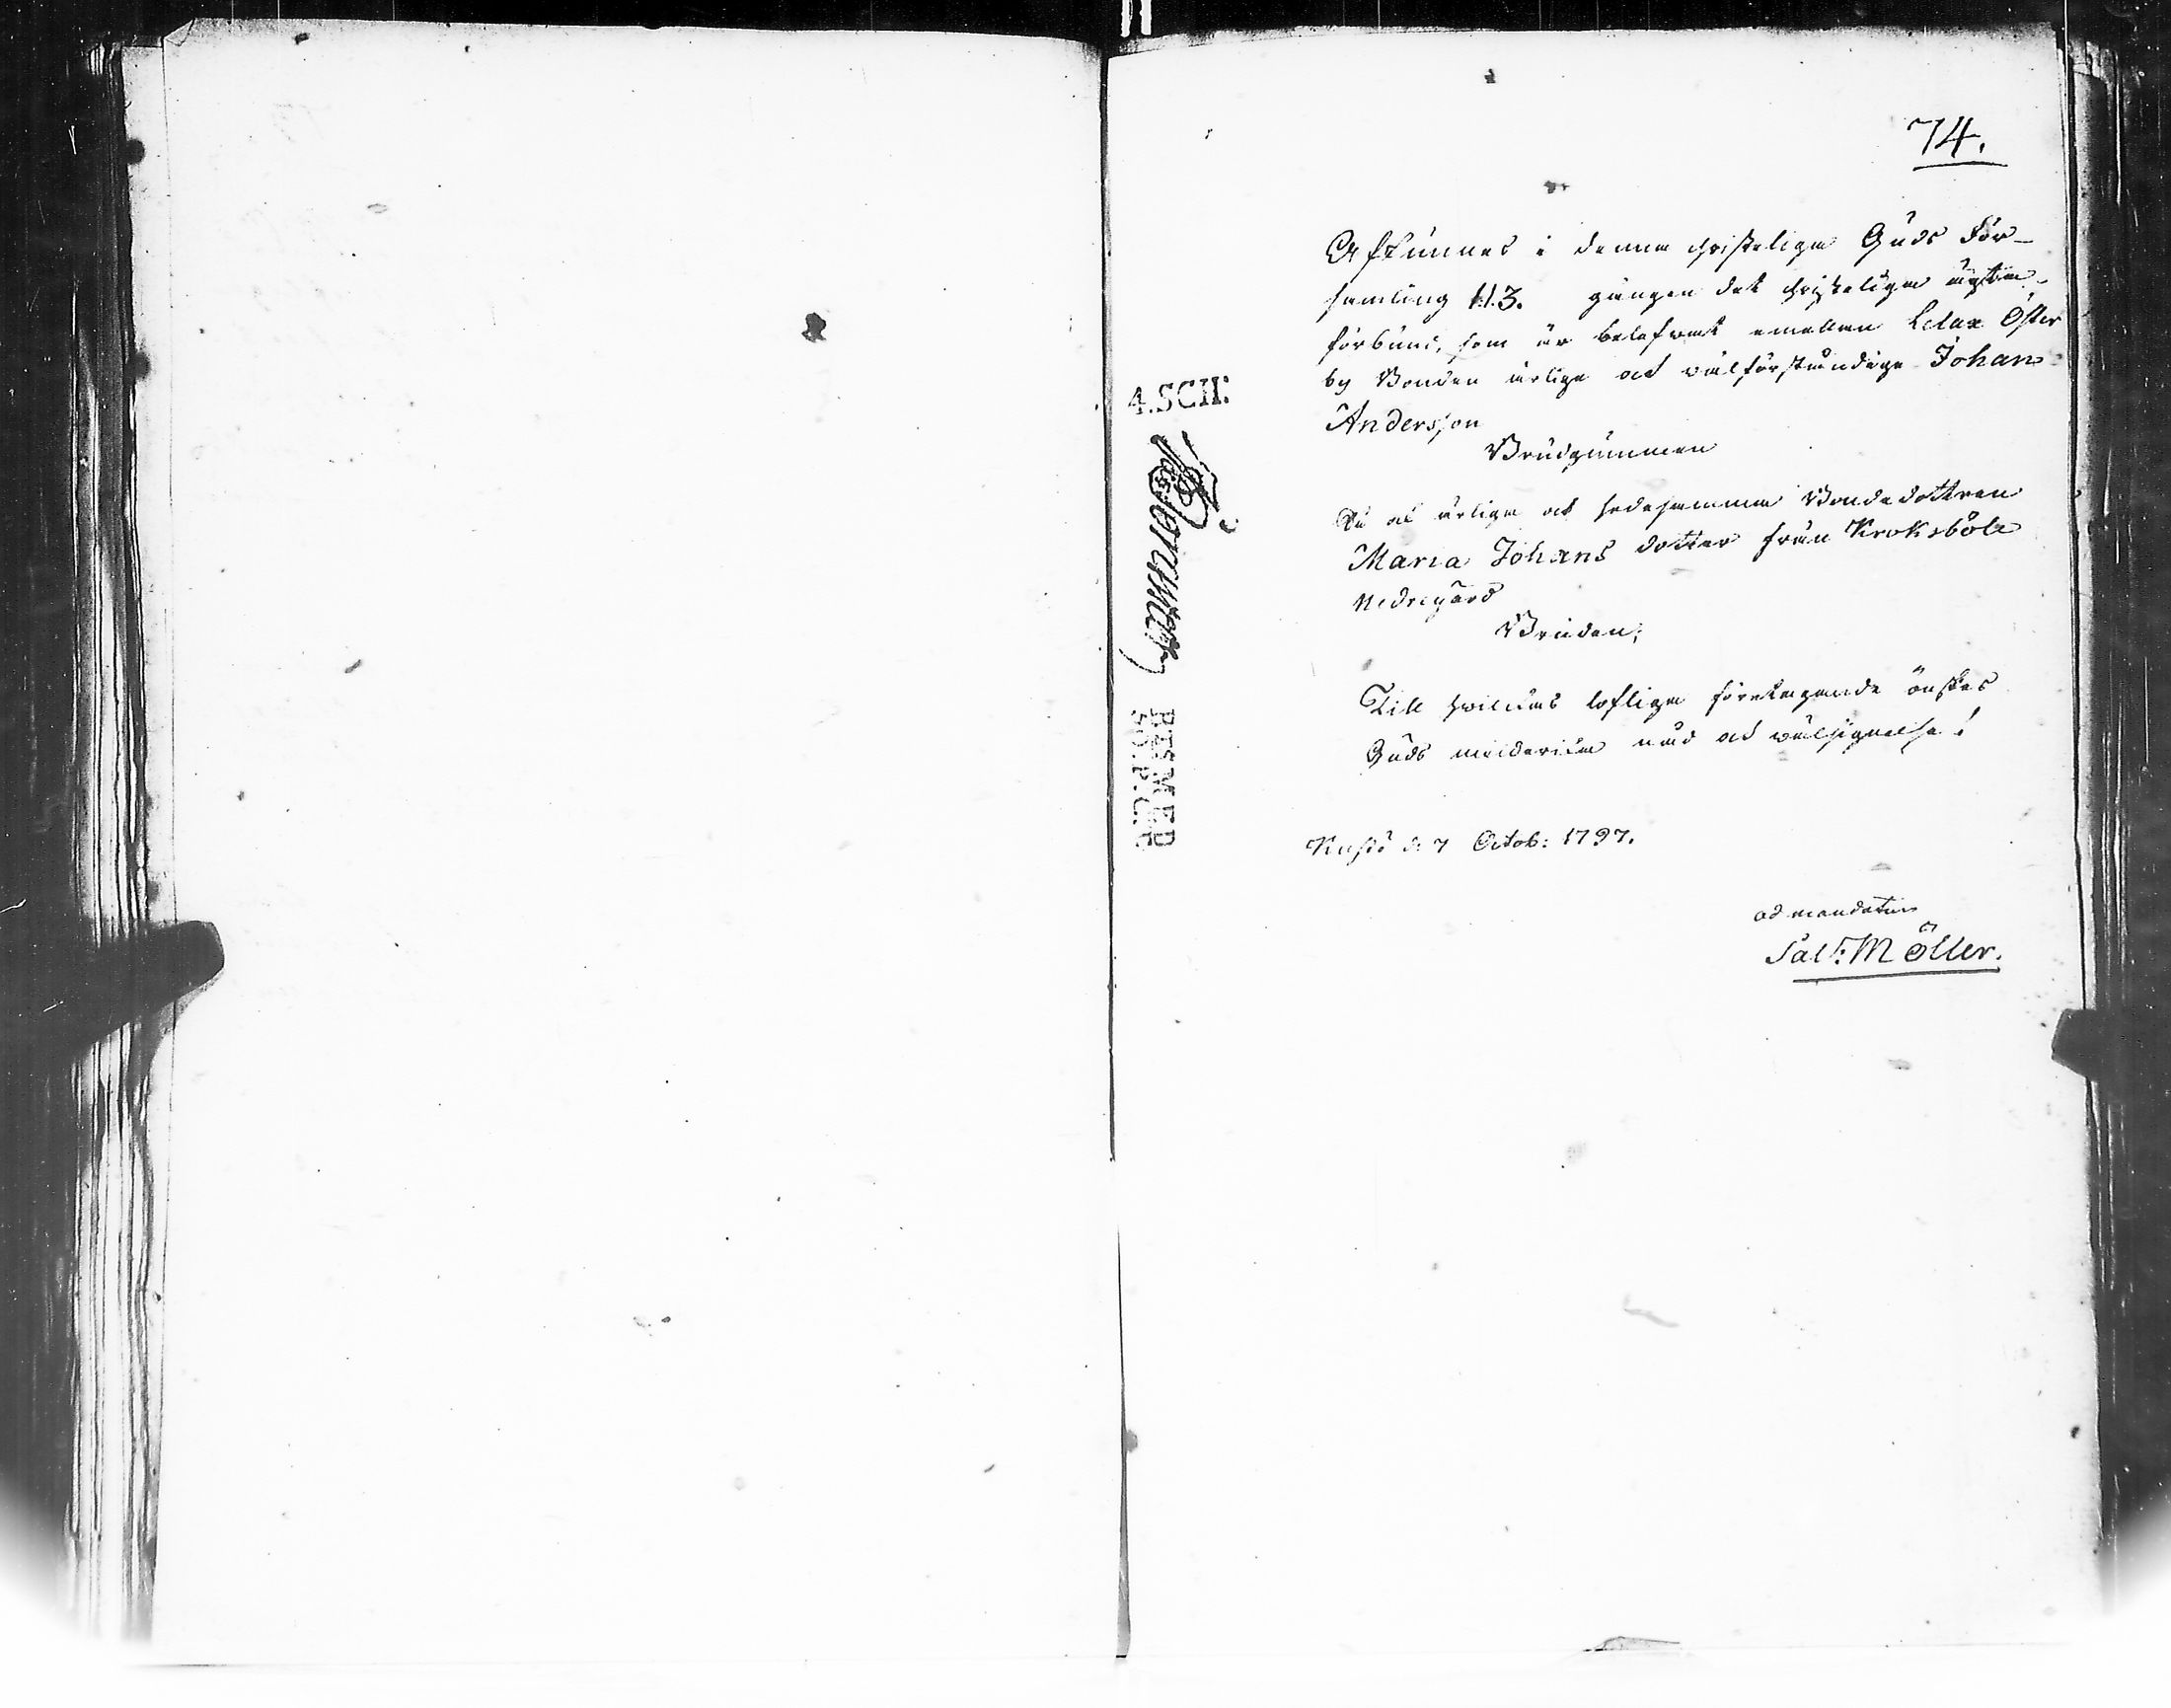 74.
Afkunnas i denna christeliga Guds För-
samling 1.1.3. gången det christeliga ägta-
förbund, som är belefwat emellan Lelax Öster
by Bonden ärlige och wälförståndige Johan
Andersson
Brudgummen
Så ok ärliga och hedesamma Bondedottren
Maria Johans dotter från Kroksböle
Nedregård
Bruden;
Till hwilkas lofliga företagande önskas
Guds milderika nåd och wälsignelse!
d. 7 Octob: 1797.
ad mandatum
Sal: Möller.
4.SCH: